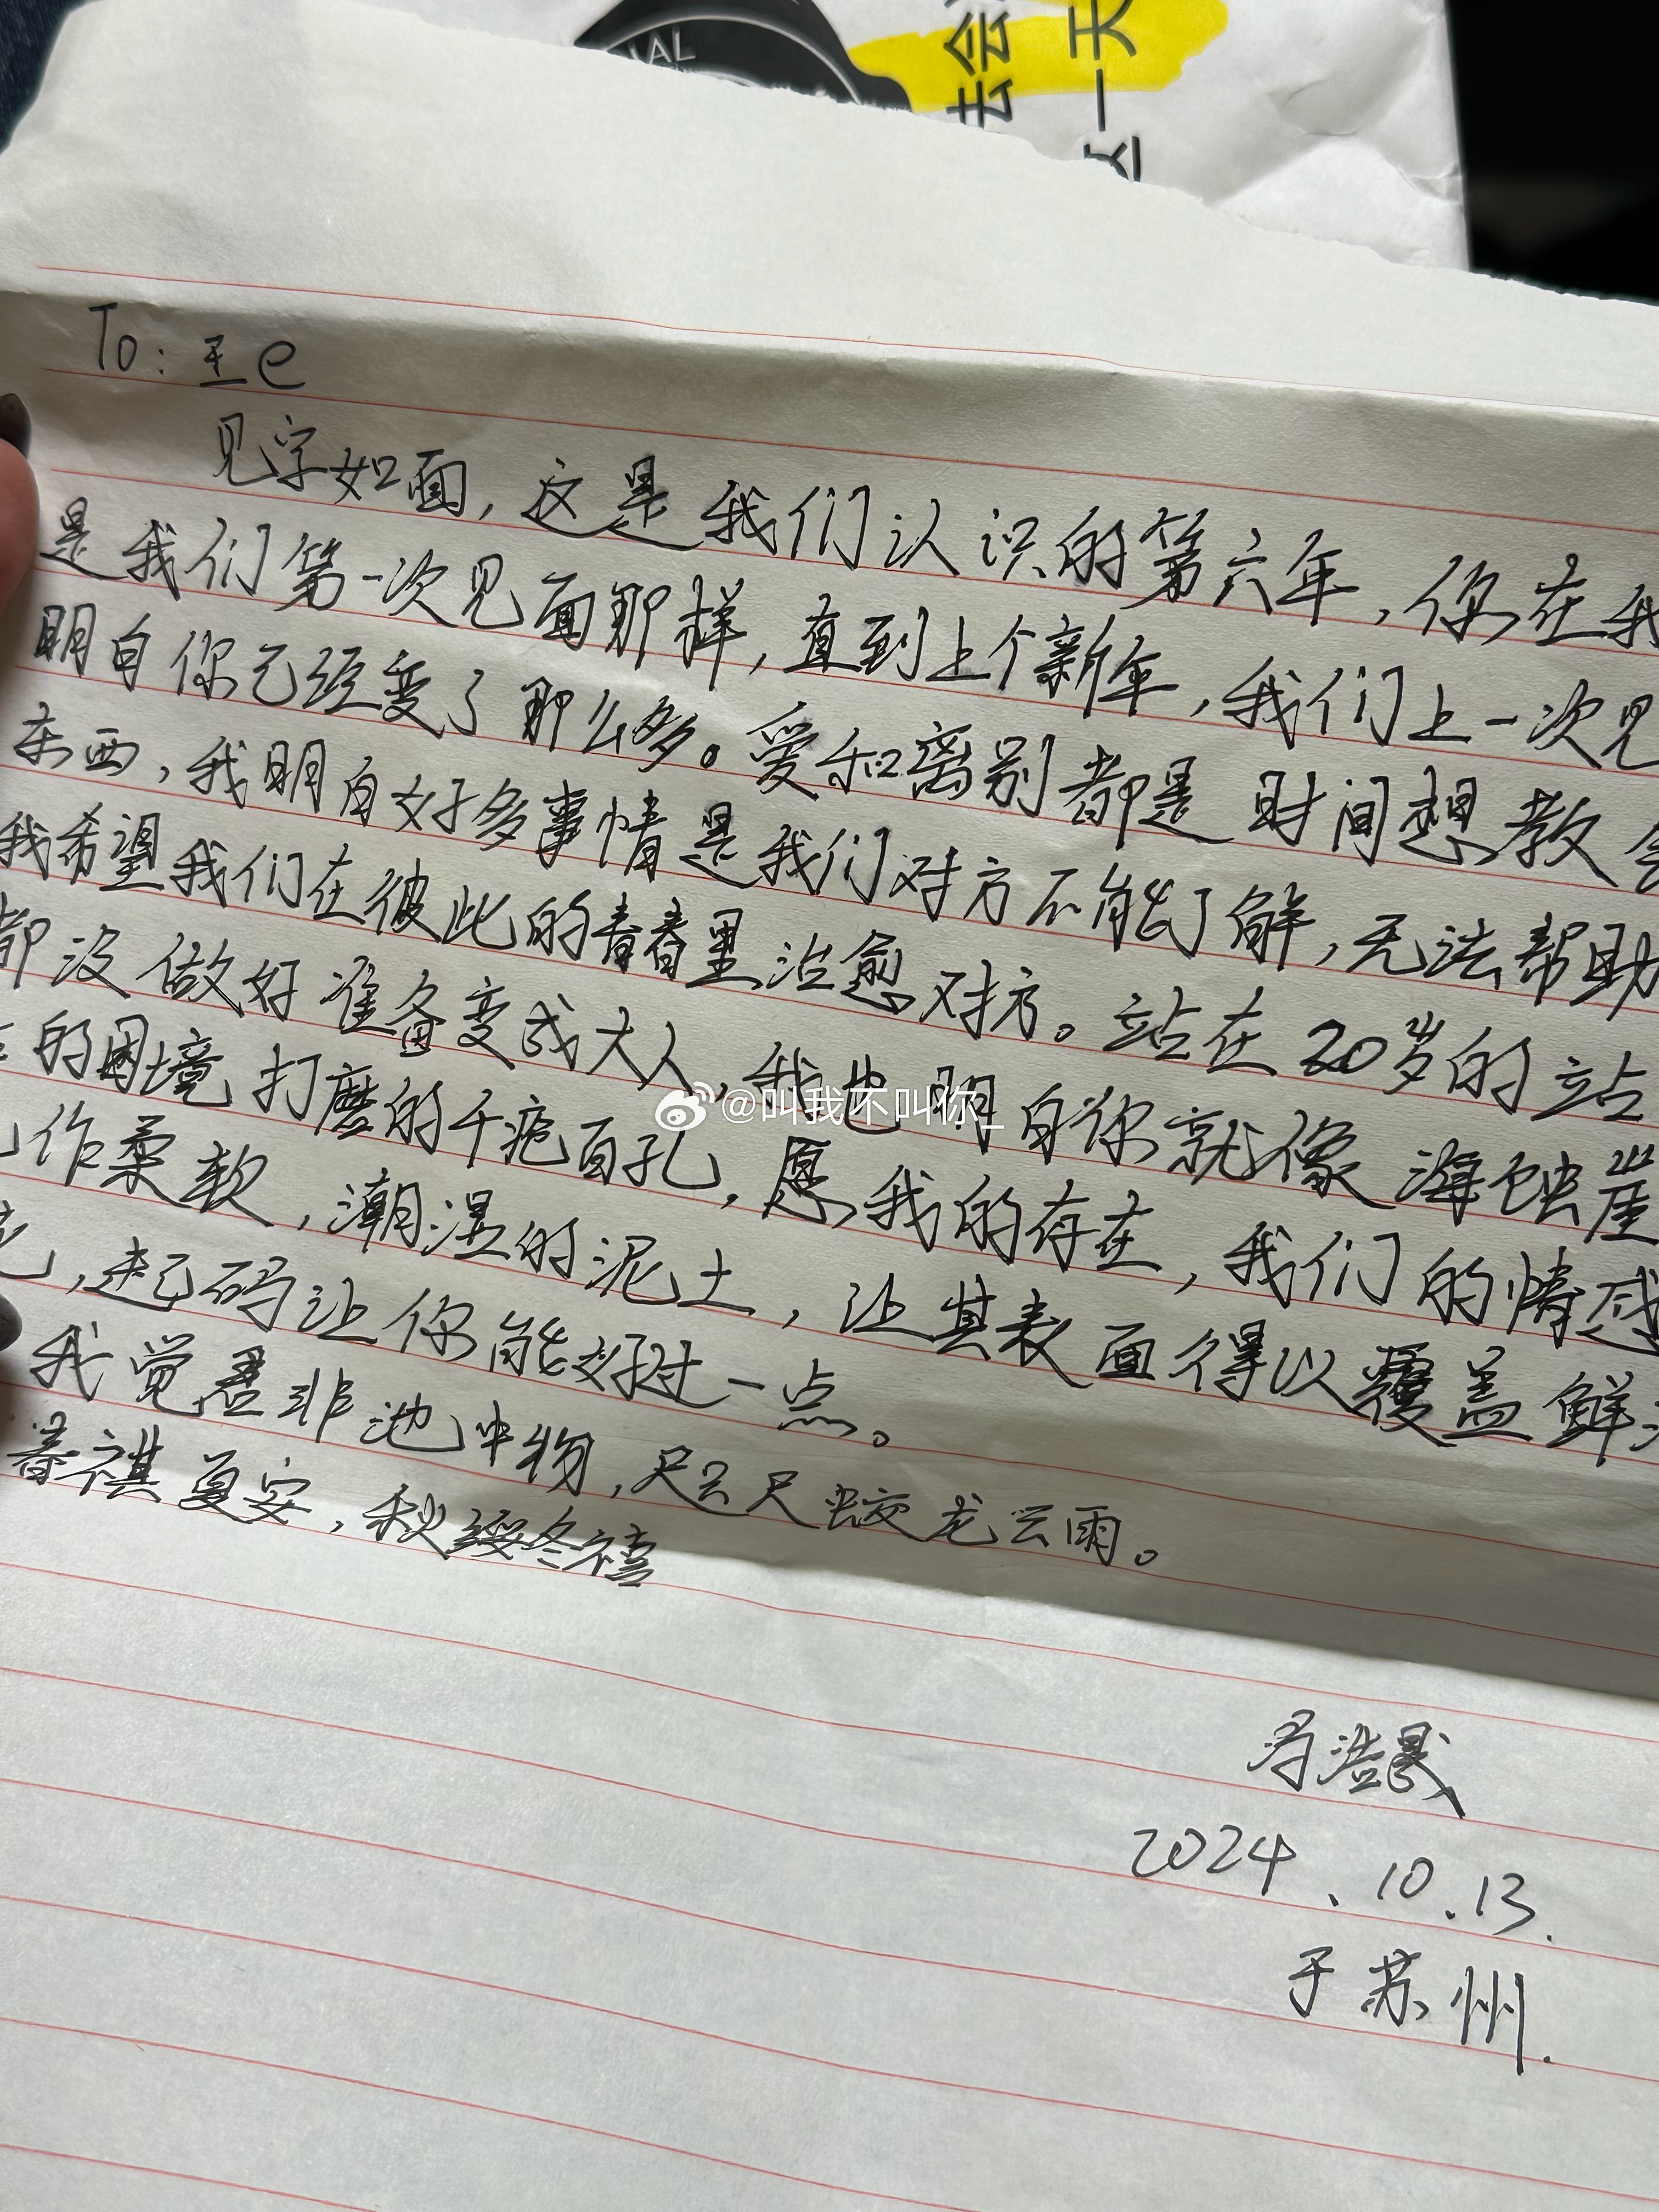 NAL
去会
一天
To: 王e
见字如面，这是我们认识的第六年，你在我
是我们第一次见面那样，直到上个新年，我们上一次见
明白你已经变了那么多。爱和离别都是时间想教会
东西，我明白好多事情是我们对方不能了解，无法帮助
我希望我们在彼此的青春里治愈对方。站在20岁的站
都没做好准备变成大人，我也明白你就像海蚀崖
的困境打磨的千疮百孔，愿我的存在，我们的情感
作柔软，潮湿的泥土，让其表面得以覆盖鲜
，起码让你能好过一点。
我觉君非池中物，咫尺蛟龙云雨。
春祺夏安，秋绥冬禧
2024.10.13.
于苏州.
@叫我不叫你_